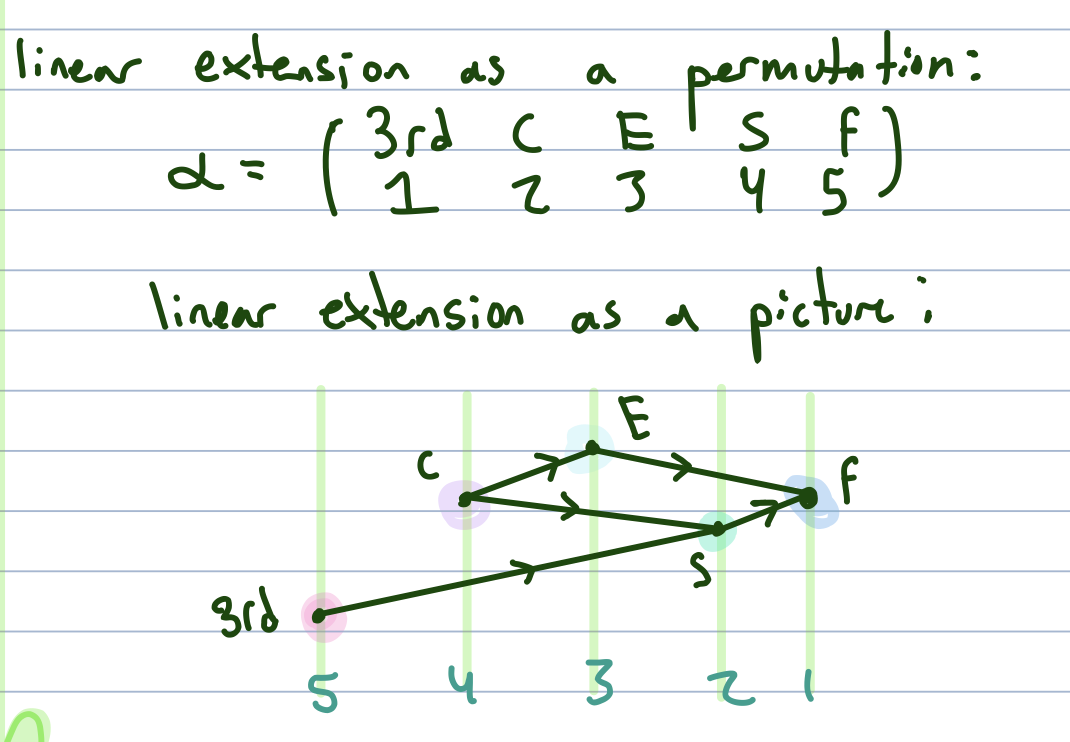 linear extension as a permutation:
3rd C E S F
α = ( 1 2 3 4 5 )
linear extension as a picture:
E
C F
S
3rd
5 4 3 2 1